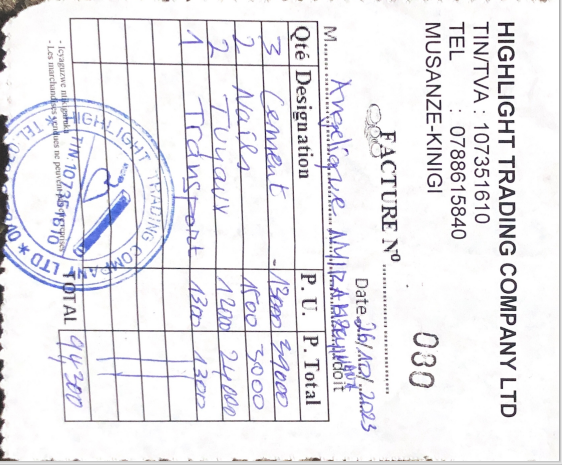 HIGHLIGHT TRADING COMPANY LTD
TIN/TVA : 107351610
TEL : 0788615840
MUSANZE-KINIGI
080
FACTURE Nº
Date 26/10/2023
M Angelique doit
Qté Designation P. U. P. Total
3 Cement 13000
2 Nails 1500 3000
2 Tuyaux 12000 24000
1 Transport 1300 1300
TOTAL 94300
- Icyaguzwe
- Les marchandises vendues ne peuvent
HIGHLIGHT TRADING COMPANY LTD *
TIN 107351610
TEL